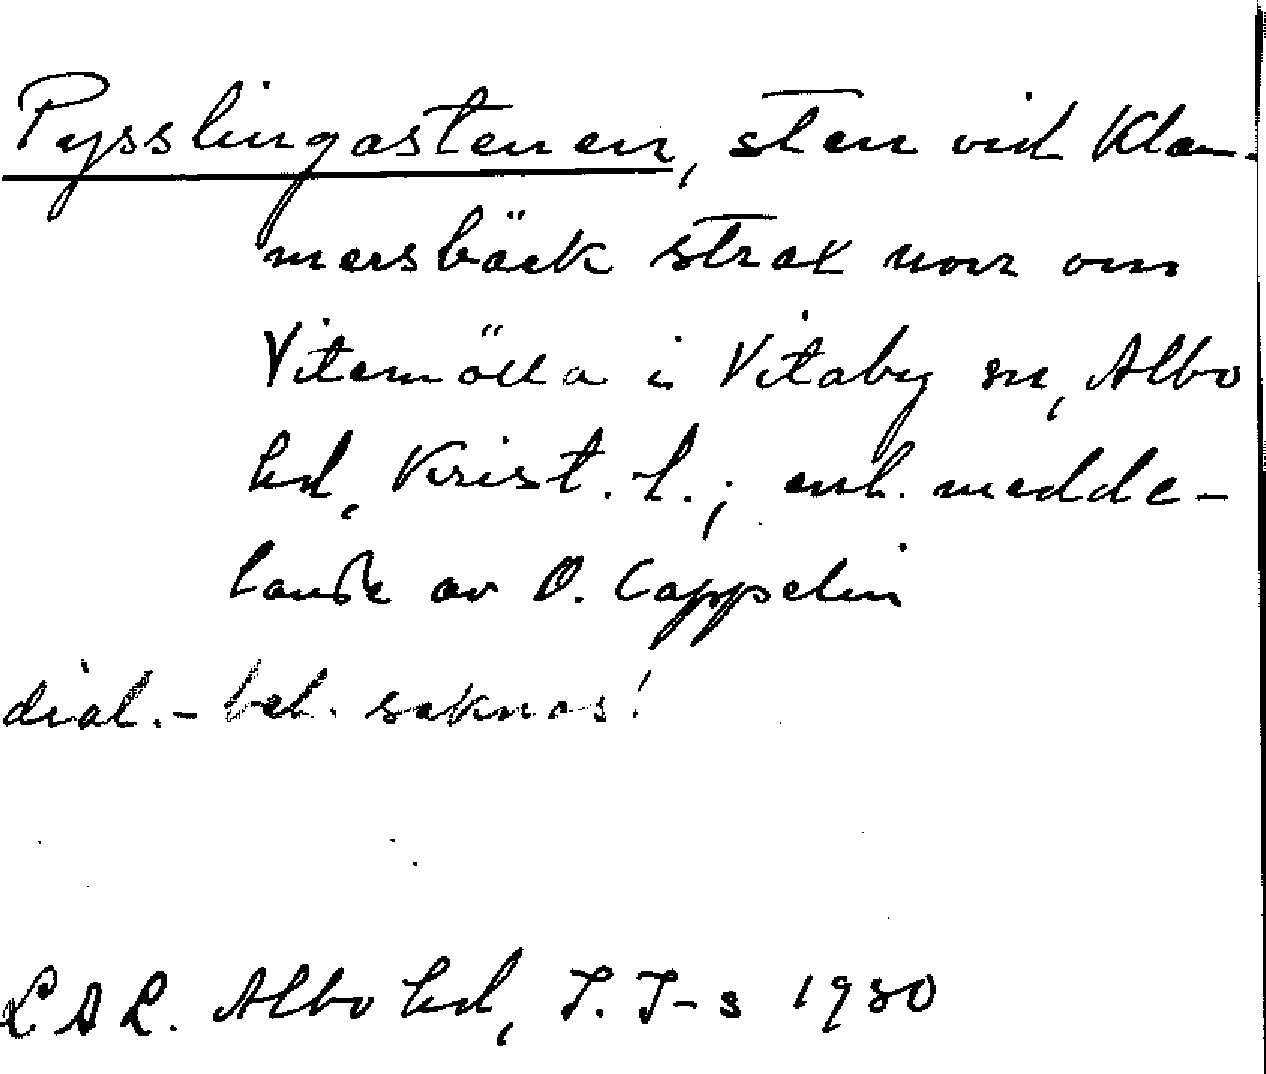 Pysslingastenen, sten vid Klam-
mersbäck strax norr om
Vitemölla i Vitaby sn, Albo
hd, Krist. l.; enl. medde-
lande av O. Cappelin
dial.-bel. saknas!
LAL. Albo hd, I. I-s 1930